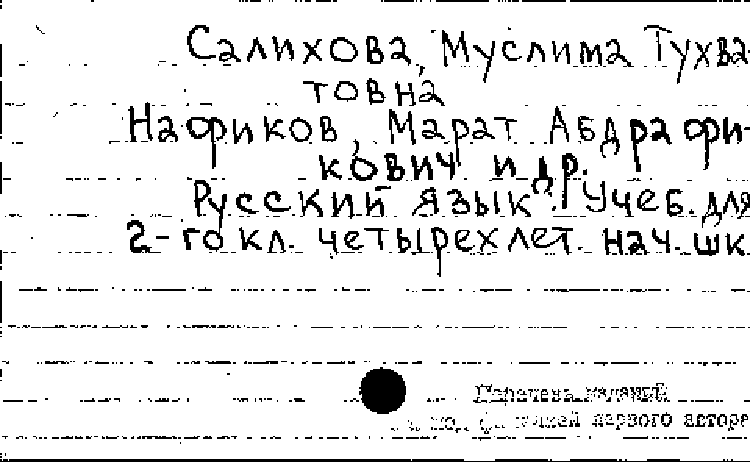 Салихова, Муслима Тухва
товна
Нафиков, Марат Абдрафи-
кович и др.
Русский язык : Учеб. для
2-го кл. четырехлет. нач. шк.
первого автора